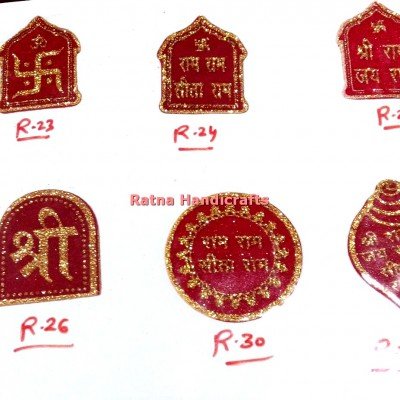 ॐ
राम राम
सीता राम
श्री राम
जय रा
R-23
R-24
R-2
Ratna Handicrafts
श्री
राम राम
सीता राम
श्री
जय
R-26
R-30